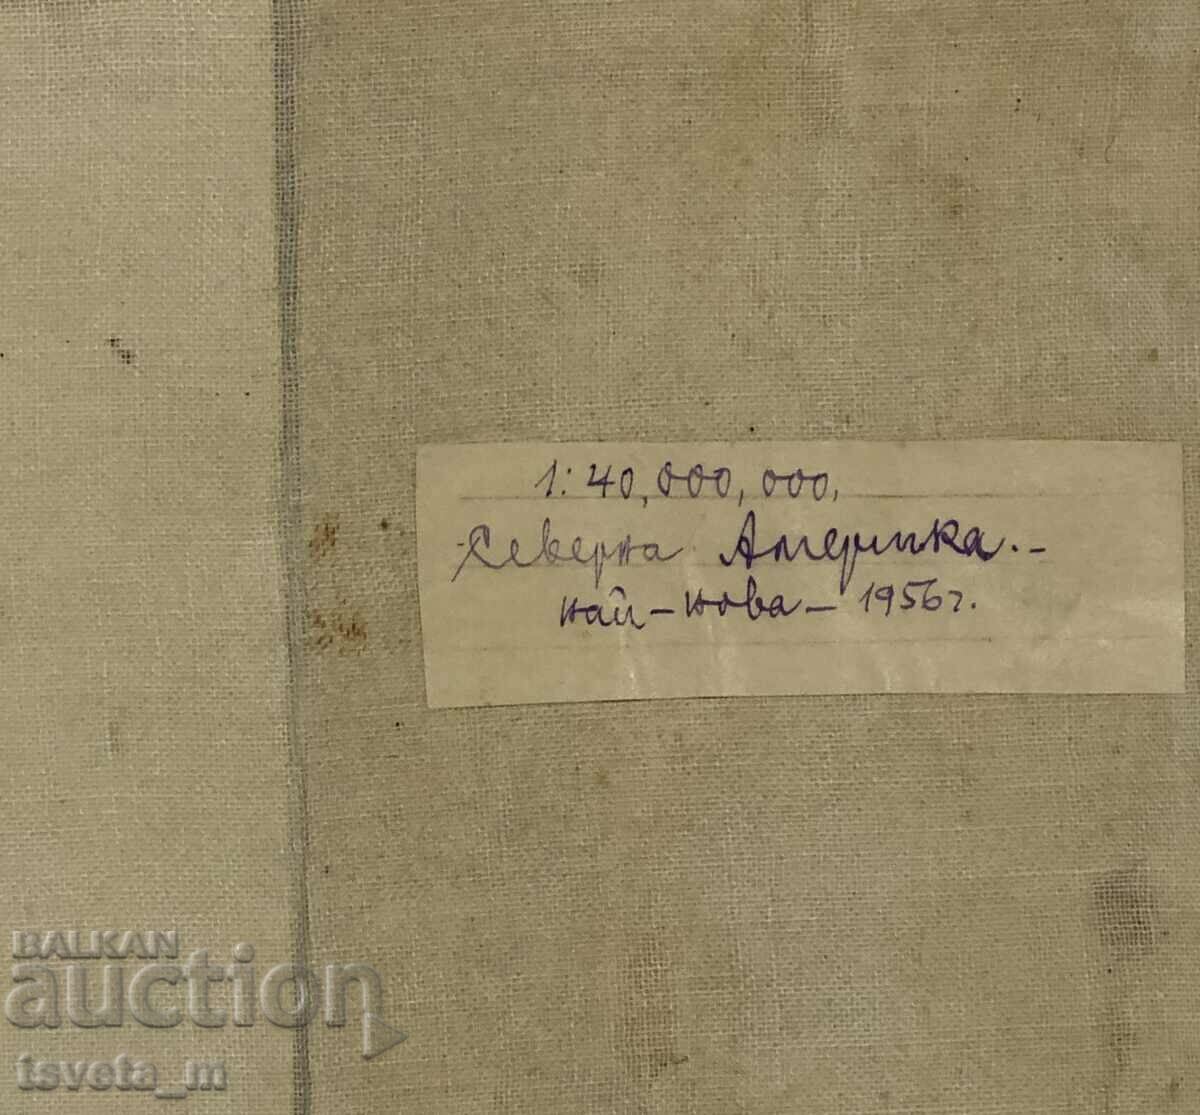 1:40,000,000.
Северна Америка.-
най-нова - 1956 г.
BALKAN
auction
tsveta_m